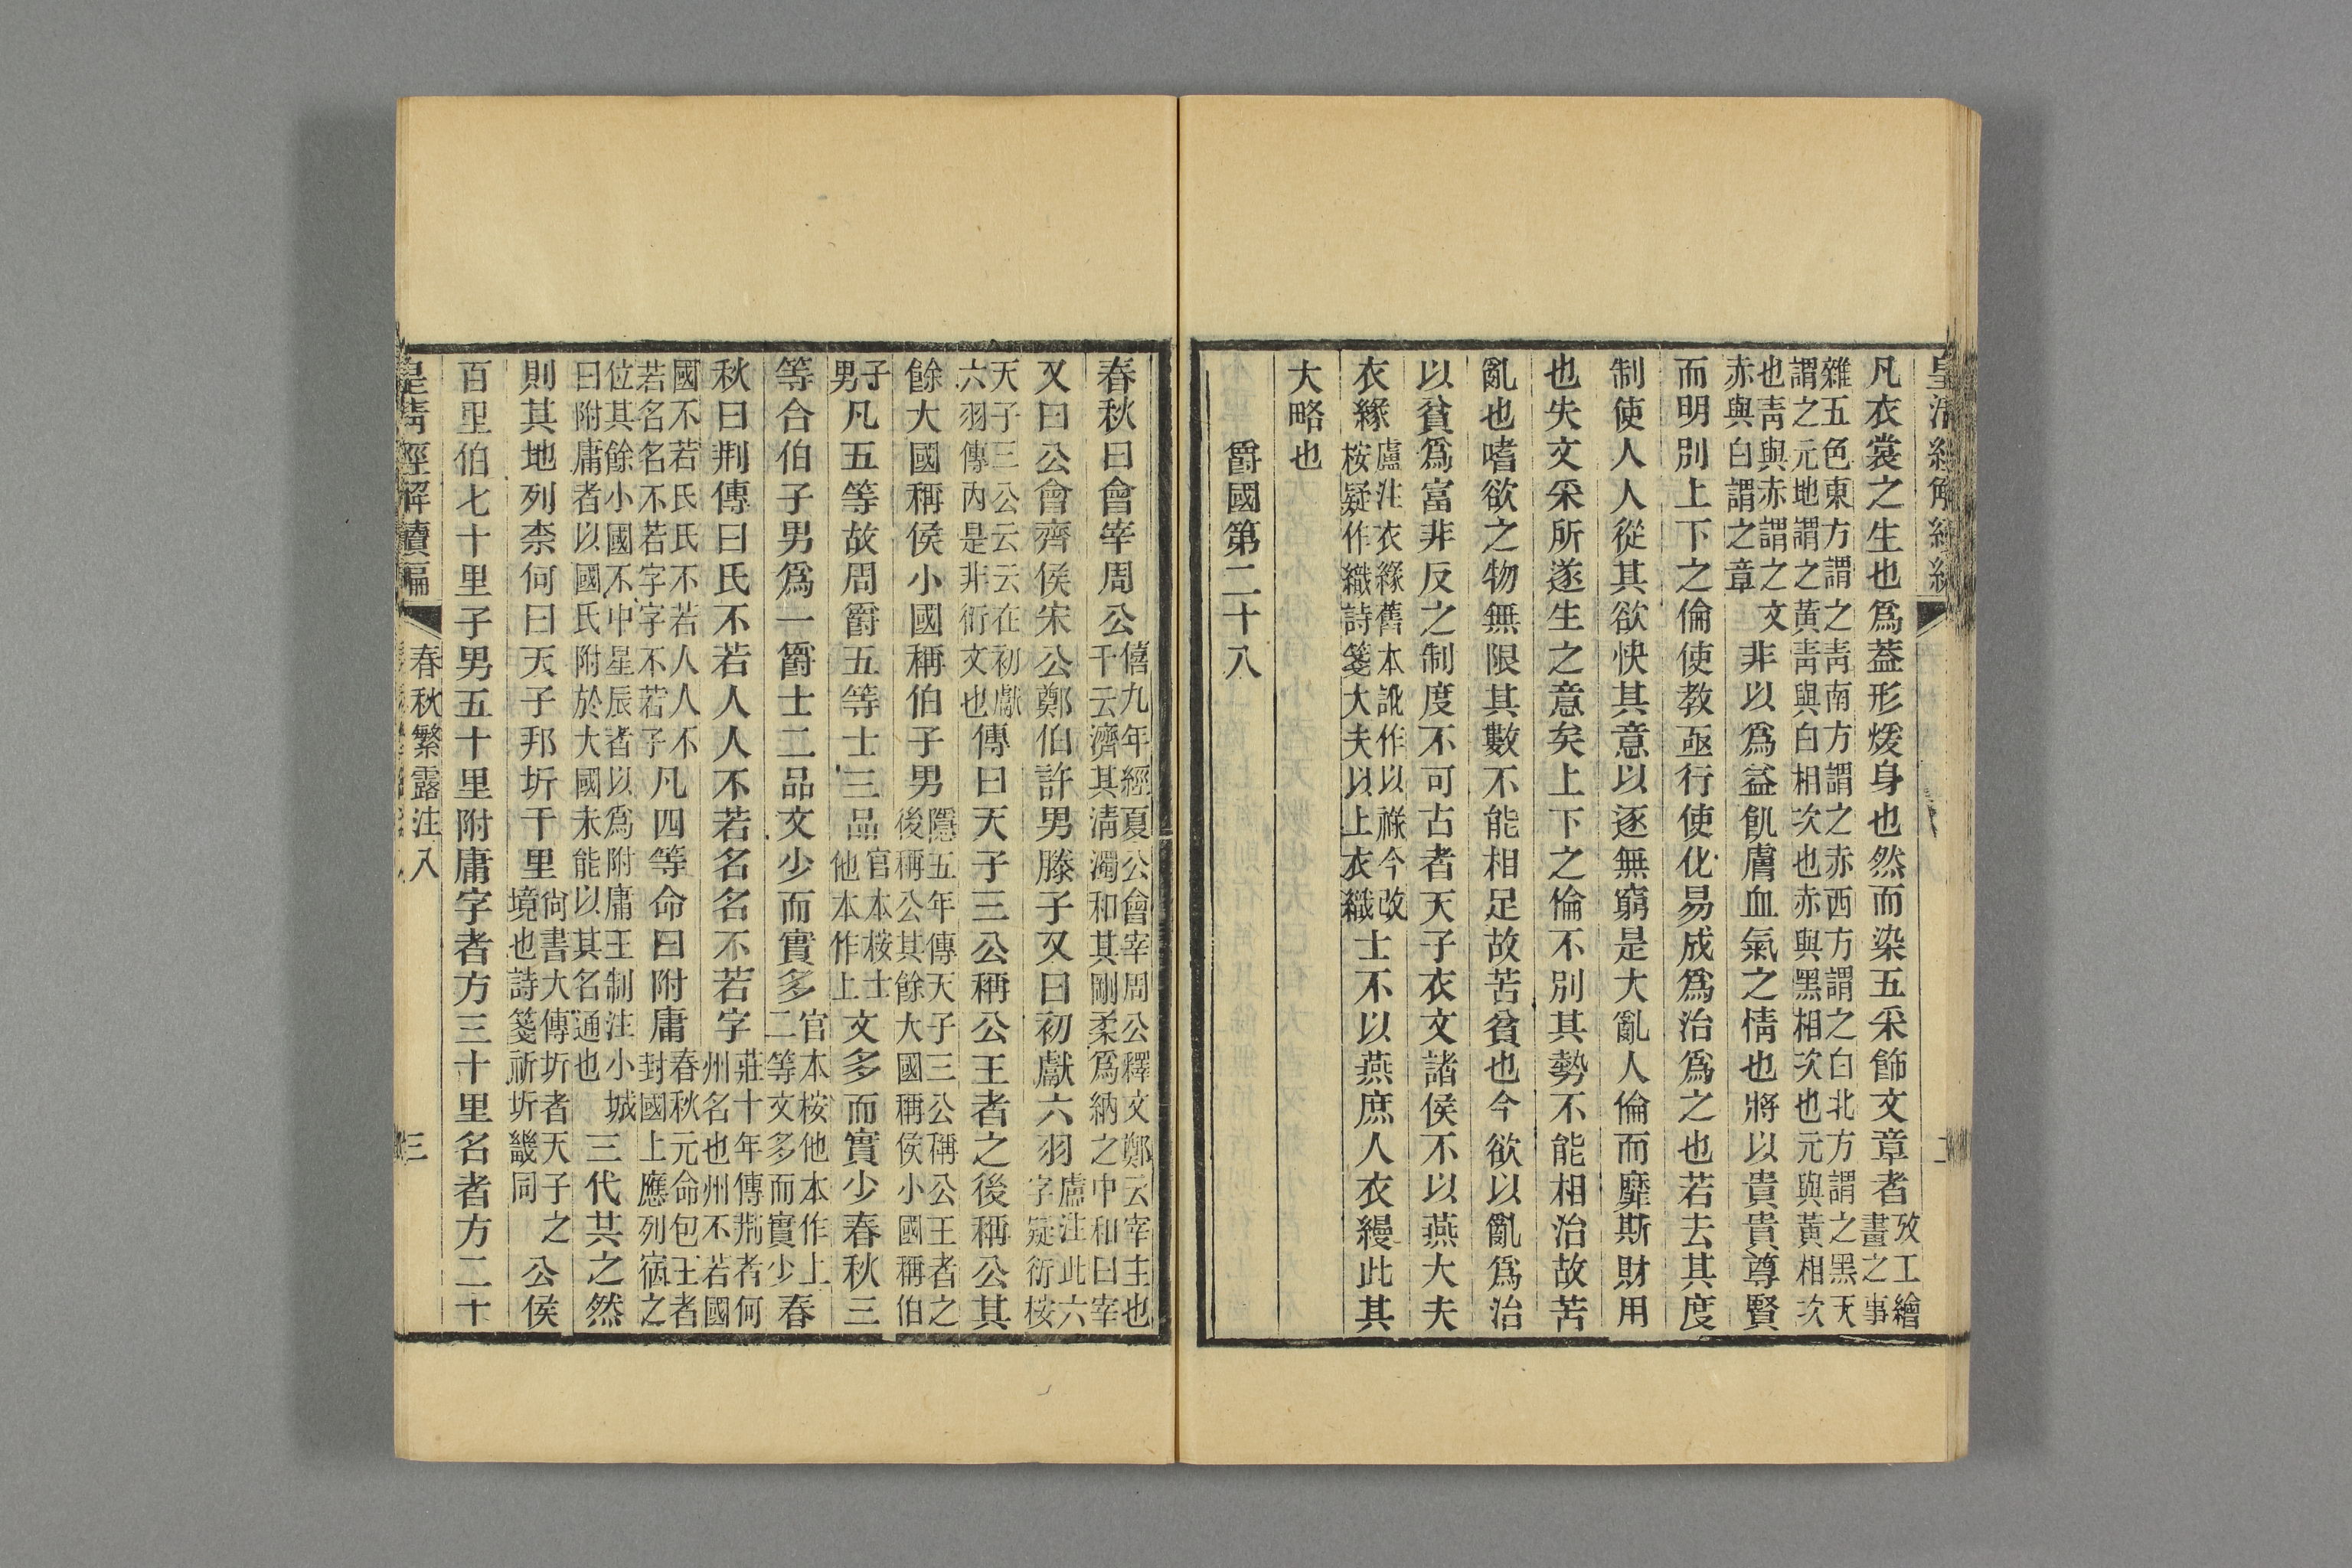 凡衣裳之生也爲蓋形煖身也然而染五采飾文章者攷工繪畫之事
雜五色東方謂之靑南方謂之赤西方謂之白北方謂之黑天
謂之元地謂之黃靑與白相次也赤與黑相次也元與黃相次
也靑與赤謂之文赤與白謂之章非以爲益飢膚血氣之情也將以貴貴尊賢
而明別上下之倫使教亟行使化易成爲治爲之也若去其度
制使人人從其欲快其意以逐無窮是大亂人倫而靡斯財用
也失文采所遂生之意矣上下之倫不別其勢不能相治故苦
亂也嗜欲之物無限其數不能相足故苦貧也今欲以亂爲治
以貧爲富非反之制度不可古者天子衣文諸侯不以燕大夫
衣緣盧注衣緣舊本訛作以祿今改桉疑作織詩箋大夫以上衣織士不以燕庶人衣縵此其
大略也
爵國第二十八
春秋曰會宰周公僖九年經夏公會宰周公釋文鄭云宰主也干云濟其清濁和其剛柔爲納之中和曰宰
又曰公會齊侯宋公鄭伯許男滕子又曰初獻六羽盧注此六字疑衍桉
天子三公云云在初獻六羽傳內是非衍文也傳曰天子三公稱公王者之後稱公其
餘大國稱侯小國稱伯子男隱五年傳天子三公稱公王者之後稱公其餘大國稱侯小國稱伯
子男凡五等故周爵五等士三品官本桉士他本作上文多而實少春秋三
等合伯子男爲一爵士二品文少而實多官本桉他本作上二等文多而實少春
秋曰荆傳曰氏不若人人不若名名不若字莊十年傳荆者何州名也州不若國
國不若氏氏不若人人不若名名不若字字不若子凡四等命曰附庸春秋元命包王者封國上應列宿之
位其餘小國不中星辰者以爲附庸王制注小城曰附庸者以國氏附於大國未能以其名通也三代共之然
則其地列柰何曰天子邦圻千里尙書大傳圻者天子之境也詩箋祈圻畿同公侯
百里伯七十里子男五十里附庸字者方三十里名者方二十
皇清經解續編 春秋繁露注八 三